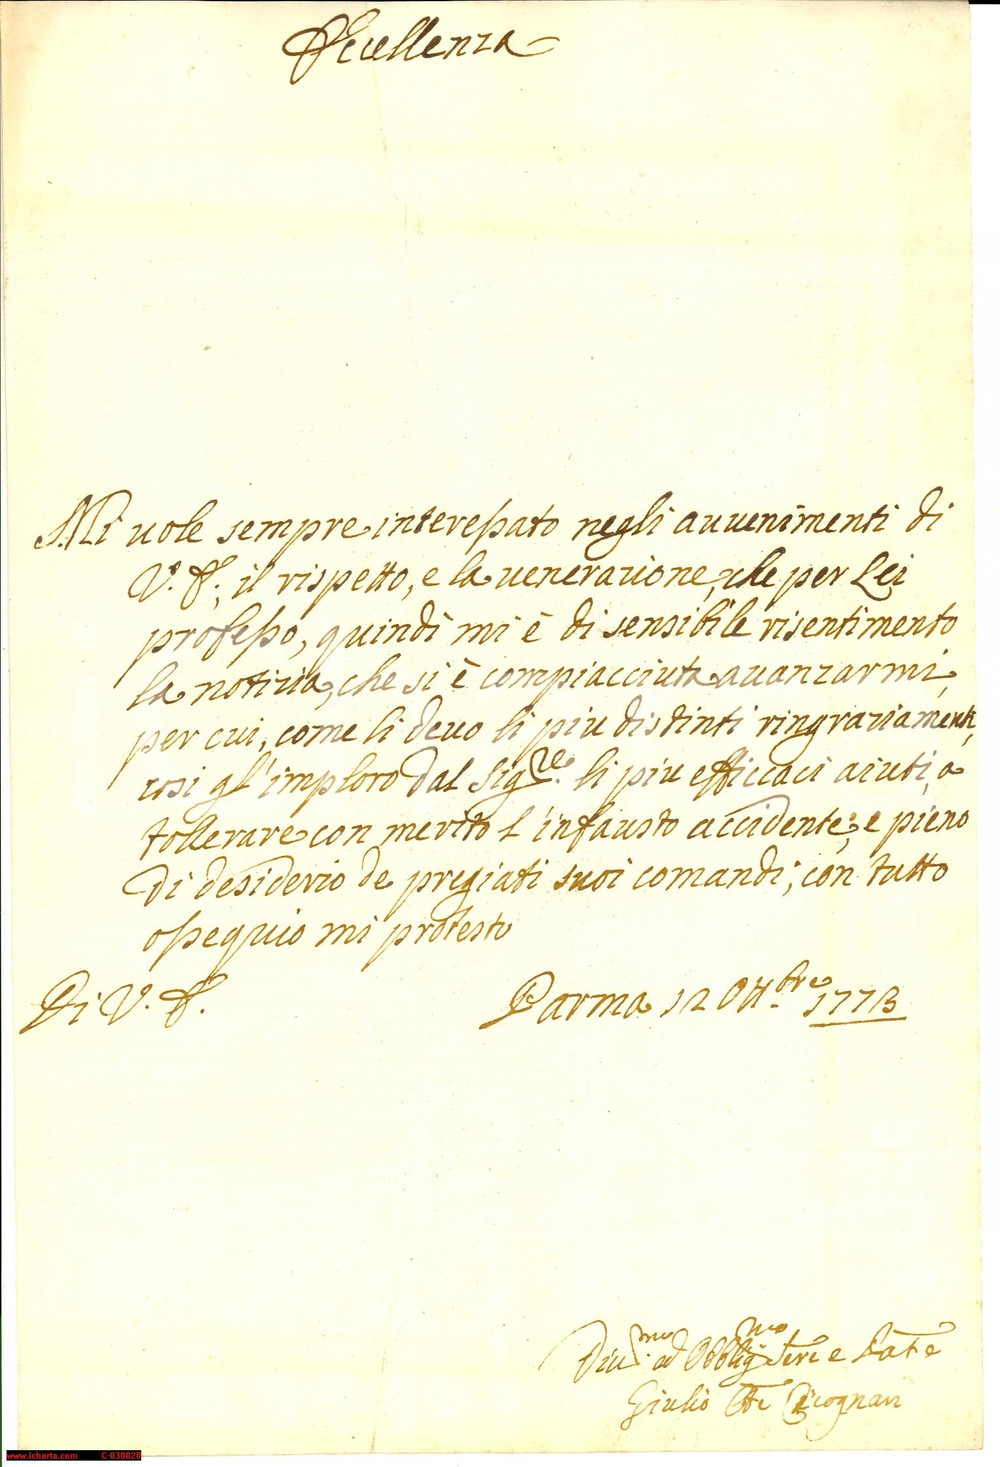 Eccellenza
Mi vole sempre interessato negli avvenimenti di
V. E., il rispetto, e la venerazione, che per Lei
professo, quindi mi è di sensibile risentimento
la notizia, che si è compiacciuta avanzarmi,
per cui, come li devo li piu distinti ringraziamenti,
cosi gl'imploro dal Sig.re li piu efficcaci aiuti, a
tollerare con merito l'infausto accidente; e pieno
di desiderio de pregiati suoi comandi, con tutto
ossequio mi protesto
Di V. E.
Parma 12 Ott.bre 1773
Div.mo ed Obblig.mo Serv e
Giulio Cte
www.icharta.com C-030020